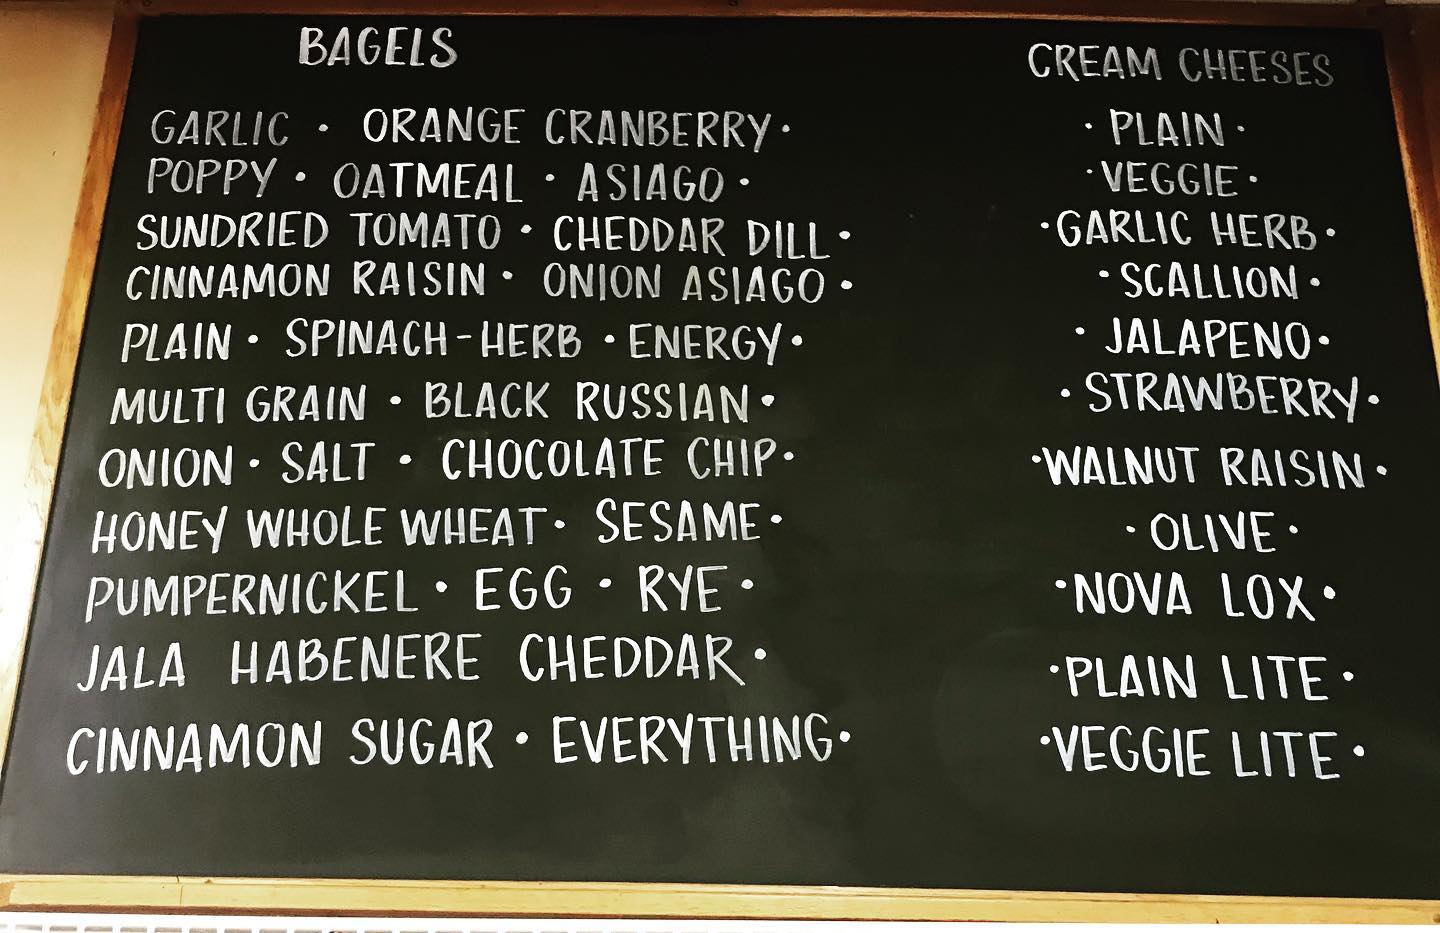 BAGELS
GARLIC · ORANGE CRANBERRY ·
POPPY · OATMEAL · ASIAGO ·
SUNDRIED TOMATO · CHEDDAR DILL ·
CINNAMON RAISIN · ONION ASIAGO ·
PLAIN · SPINACH-HERB · ENERGY ·
MULTI GRAIN · BLACK RUSSIAN ·
ONION · SALT · CHOCOLATE CHIP ·
HONEY WHOLE WHEAT · SESAME ·
PUMPERNICKEL · EGG · RYE ·
JALA HABENERE CHEDDAR ·
CINNAMON SUGAR · EVERYTHING ·
CREAM CHEESES
· PLAIN ·
· VEGGIE ·
· GARLIC HERB ·
· SCALLION ·
· JALAPENO ·
· STRAWBERRY ·
· WALNUT RAISIN ·
· OLIVE ·
· NOVA LOX ·
· PLAIN LITE ·
· VEGGIE LITE ·